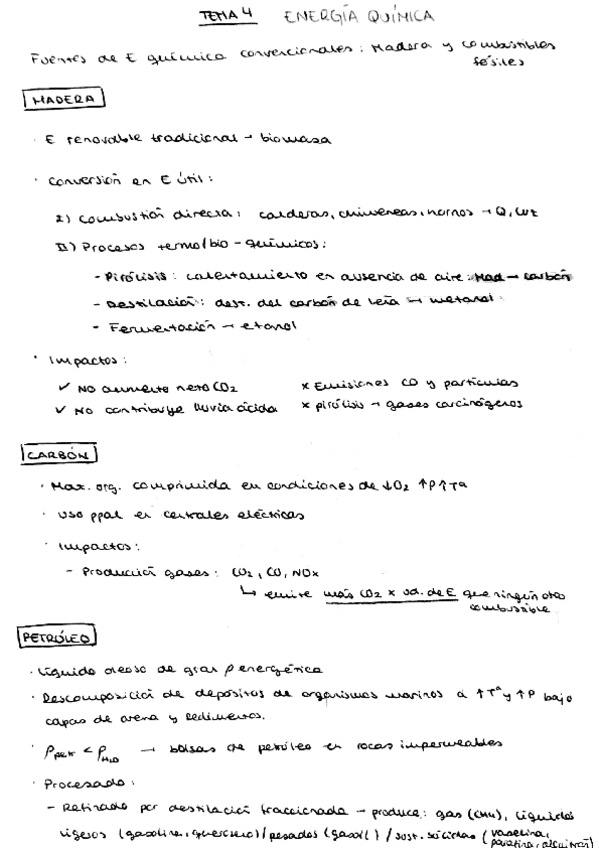 TEMA 4 ENERGÍA QUÍMICA
Fuentes de E química convencionales: Madera y combustibles
fósiles
MADERA
· E renovable tradicional → biomasa
· Conversión en E útil:
I) Combustión directa: calderas, chimeneas, hornos → Q, luz
II) Procesos termo/bio-químicos:
- Pirólisis: calentamiento en ausencia de aire: Mad → carbón
- Destilación: dest. del carbón de leña → metanol
- Fermentación → etanol
· Impactos:
✓ No aumento neto CO2 × Emisiones CO y partículas
✓ No contribuye lluvia ácida × pirólisis → gases carcinógenos
CARBÓN
· Mat. org. comprimida en condiciones de ↓O2 ↑P↑Tª
· uso ppal en centrales eléctricas
· Impactos:
- Producción gases: CO2, CO, NOx
↳ emite más CO2 x ud. de E que ningún otro
combustible
PETRÓLEO
· Líquido oleoso de gran ρ energética
· Descomposición de depósitos de organismos marinos a ↑Tª y ↑P bajo
capas de arena y sedimentos.
· ρpetr < ρH2O → bolsas de petróleo en rocas impermeables
· Procesado:
- Refinado por destilación fraccionada → produce: gas (CH4), líquidos
ligeros (gasolina, queroseno)/pesados (gasoil) / sust. sólidas (vaselina,
parafina, alquitrán)